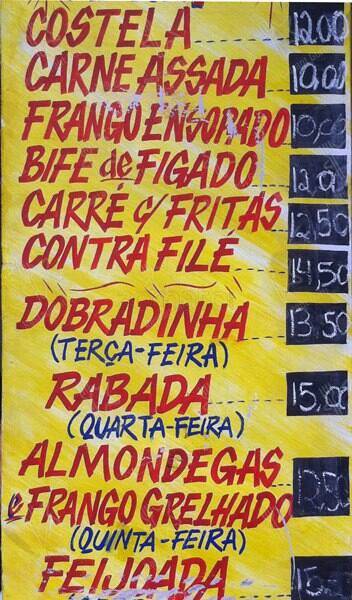 COSTELA 12,00
CARNE ASSADA 10,00
FRANGO ENSOPADO 10,00
BIFE de FIGADO 12,00
CARRÉ c/ FRITAS 12,50
CONTRA FILÉ 14,50
DOBRADINHA 13,50
(TERÇA-FEIRA)
RABADA 15,00
(QUARTA-FEIRA)
ALMONDEGAS
e FRANGO GRELHADO
(QUINTA-FEIRA)
FEIJOADA